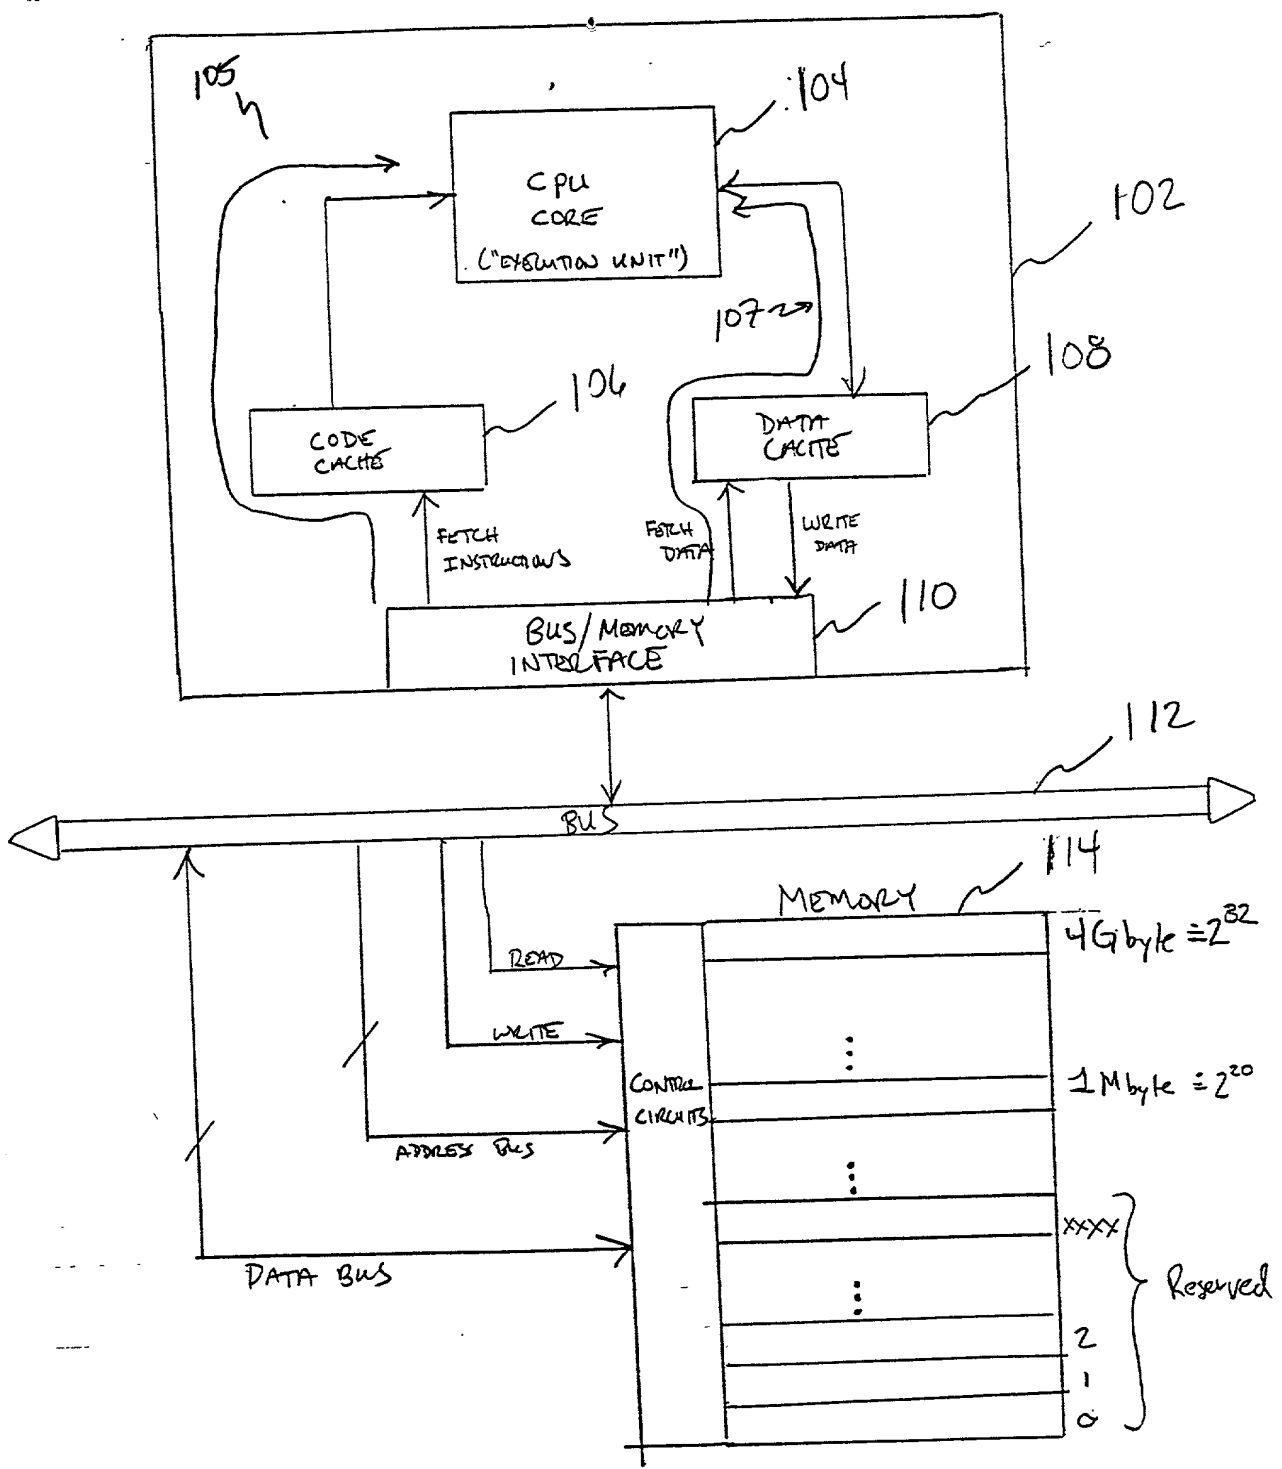 105
104
CPU
CORE
("EXECUTION UNIT")
102
107
108
106
CODE
CACHE
DATA
CACHE
FETCH
INSTRUCTIONS
FETCH
DATA
WRITE
DATA
110
BUS/MEMORY
INTERFACE
112
BUS
114
MEMORY
4Gbyte ≡ 2^32
READ
WRITE
1Mbyte ≡ 2^20
CONTROL
CIRCUITS
ADDRESS BUS
XXXX
DATA BUS
Reserved
2
1
0